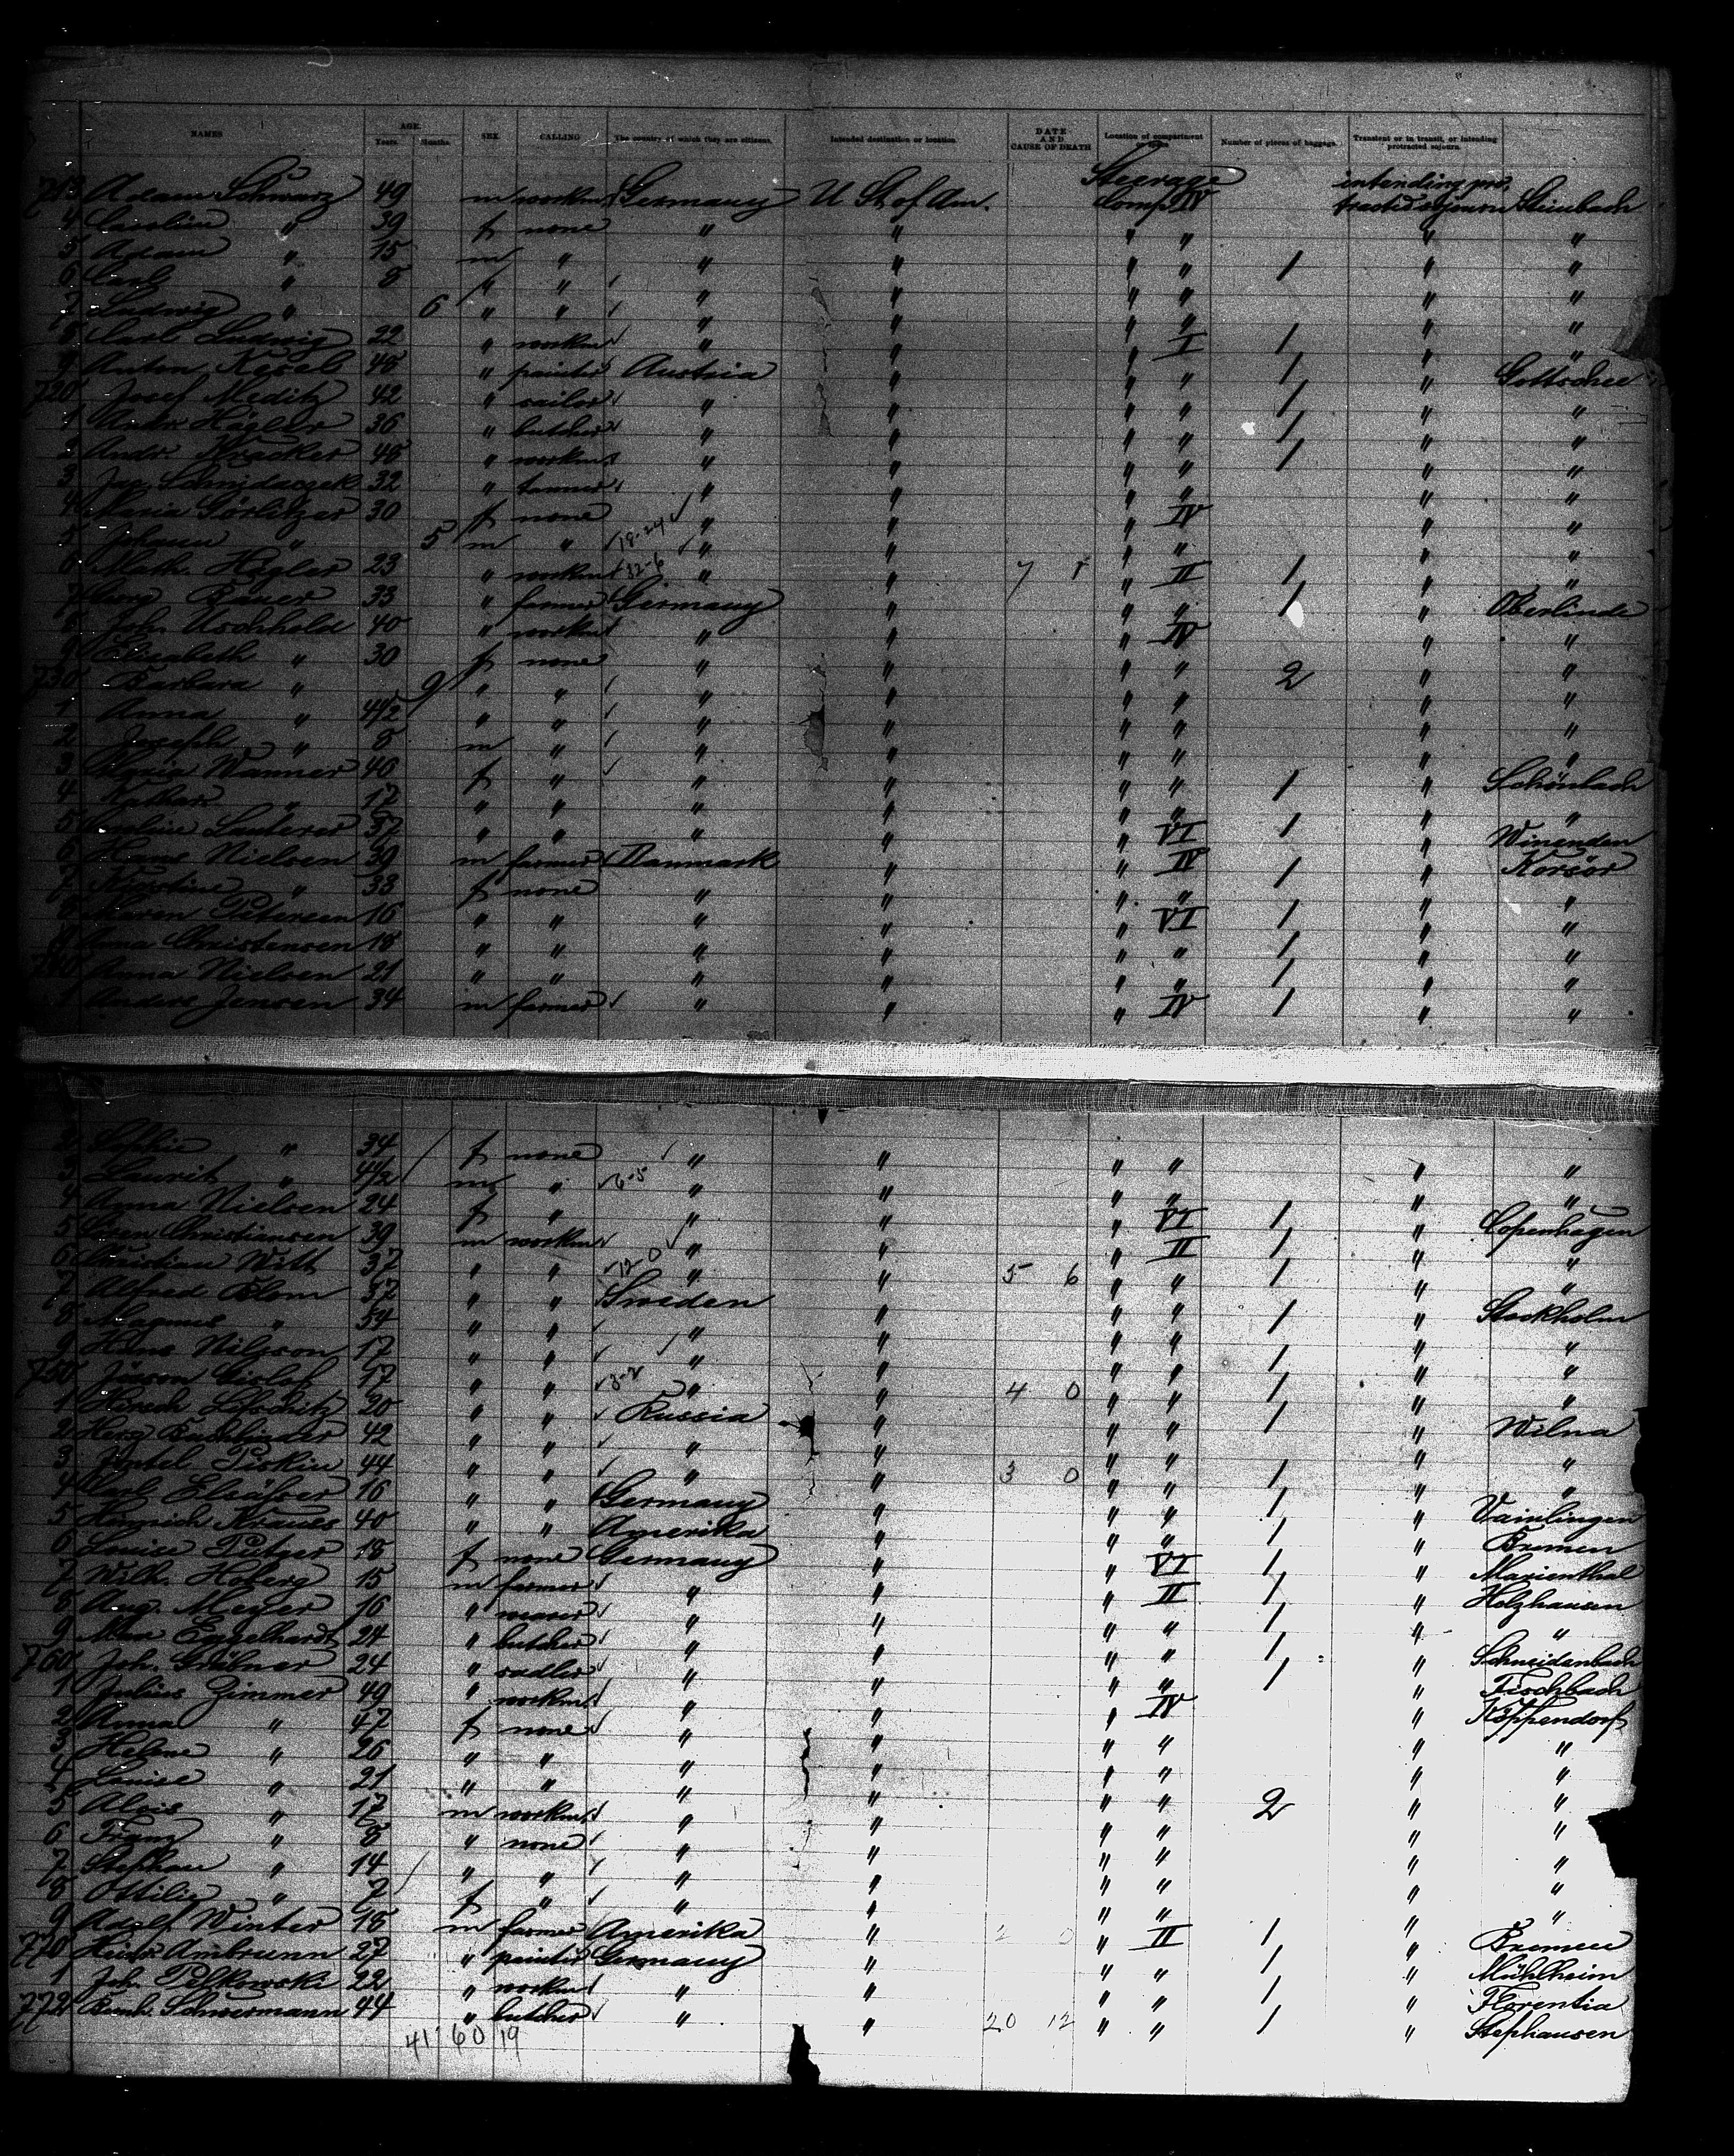 NAMES AGE. Years Months. SEX. CALLING The country of which they are citizens. Intended destination or location. DATE AND CAUSE OF DEATH Location of compartment or space. Number of pieces of baggage. Transient or in transit, or intending protracted sojourn.
713 Adam Schwarz 49 m workm. Germany U St of Am. Steerage Comp. IV intending protracted sojourn Steinbach
4 Carolin " 39 f none " " " " " "
5 Adam " 15 m " " " " " 1 " "
6 Carl " 8 " " " " " " " "
7 Ludwig " 6 " " " " " " " "
8 Carl Ludwig 22 " workm. " " " I 1 " "
9 Anton Kesel 48 " painter Austria " " " 1 " Gottschee
720 Josef Meditz 42 " sailor " " " " 1 " "
1 Högler 36 " butcher " " " " 1 " "
2 Andr. Kracker 48 " workm. " " " " 1 " "
3 Jac. 32 " tanner " " " " " "
4 Maria Görlitzer 30 f none " " " IV " "
5 Johann " 5 m " 18-24 " " " " " "
6 Math. Högler 23 " workm. 32-6 " " 7 " II 1 " "
7 Georg Bauer 33 " farmer Germany " " " 1 " Oberlinde
8 Joh. Uschhold 40 " workm. " " " IV " "
9 Elisabeth " 30 f none " " " " 2 " "
730 Barbara " 9 " " " " " " " "
1 Anna " 4 1/2 " " " " " " " "
2 Joseph " 8 m " " " " " " "
3 Maria Wanner 46 f " " " " " 1 " Schönbach
4 Kathar. " 17 " " " " " " " "
5 Lauterer 37 " " " " " VI 1 " Winenden
6 Hans Nielsen 39 m farmer Danmark " " IV 1 " Korsör
7 Kirstine " 33 f none " " " " "  "
8 Maren Petersen 16 " " " " " VI 1 " "
9 Anna Christensen 18 " " " " " " 1 " "
740 Anna Nielsen 21 " " " " " " 1 " "
1 Anders Jensen 34 m farmer " " " IV 1 " "
2 Sofhie " 34 f none " " " " " "
3 Laurit " 4 1/2 m " 6-5 " " " " " "
4 Anna Nielsen 24 f " " " " VI 1 " Copenhagen
5 Christiansen 39 m workm. " " " II 1 " "
6 Christian Witt 37 " " 12-0 " " 5 6 " " 1 " "
7 Alfred Blom 57 " " Sweden " " " 1 " Stockholm
8 Magnus " 54 " " " " " " " "
9 Hans Nilsson 17 " " " " " " 1 " "
750 17 " " 3-2 " " 4 0 " " 1 " "
1 Hirsch 20 " " Russia " " " 1 " Wilna
2 42 " " " " " " " "
3 Piskin 44 " " " " 3 0 " " 1 " "
4 Carl 16 " " Germany " " " 1 " Vainlingen
5 Heinrich Kraues 40 " " Amerika " " " 1 " Bremen
6 Louise 18 f none Germany " " VI 1 " Marienthal
7 Wilh. Hoberg 15 m farmer " " " II 1 " Holzhausen
8 Aug. Meyer 16 " " " " " 1 " "
9 Max Engelhardt 24 " butcher " " " " 1 " Schneidenbach
760 Joh. Grübner 24 " sadler " " " " 1 " Fischbach
1 Julius Zimmer 49 " workm. " " " IV " Köppendorf
2 Anna " 47 f none " " " " " "
3 Helene " 26 " " " " " " " "
4 Louise " 21 " " " " " " " "
5 Alois " 17 m workm. " " " " 2 " "
6 Franz " 8 " none " " " " " "
7 Stephan " 14 " " " " " " " "
8 Ottilie " 7 f " " " " " " "
9 Adolf Winter 18 m farmer Amerika " 2 0 " II 1 " Bremen
770 Heinr. Ambrunn 27 " painter Germany " " " 1 " Mühlheim
1 Joh. Polkowski 22 " workm. " " " " 1 " Florentia
772 Schwermann 44 " butcher " " 20 12 " " 1 " Stephausen
41 60 19